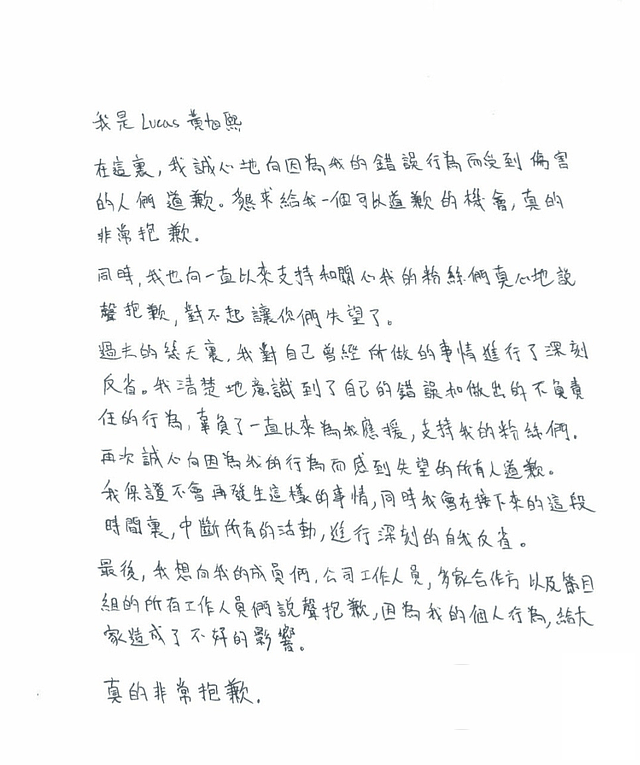 我是 Lucas 黃旭熙
在這裏,我誠心地向因為我的錯誤行為而受到 傷害
的人們 道歉。懇求給我一個可以道歉的機會,真的
非常抱歉.
同時,我也向一直以來支持和關心我的粉絲們真心地說
聲抱歉,對不起讓你們失望了。
過去的幾天裏,我對自己曾經所做的事情進行了深刻
反省。我清楚地意識到了自己的錯誤和做出的不負責
任的行為,辜負了一直以來為我應援,支持我的粉絲們.
再次誠心向因為我的行為而感到失望的所有人道歉。
我保證不會再發生這樣的事情,同時我會在接下來的這段
時間裏,中斷所有的活動,進行深刻的自我反省。
最後,我想向我的成員們,公司工作人員,多家合作方以及節目
組的所有工作人員們說聲抱歉,因為我的個人行為,給大
家造成了不好的影響。
真的非常抱歉.